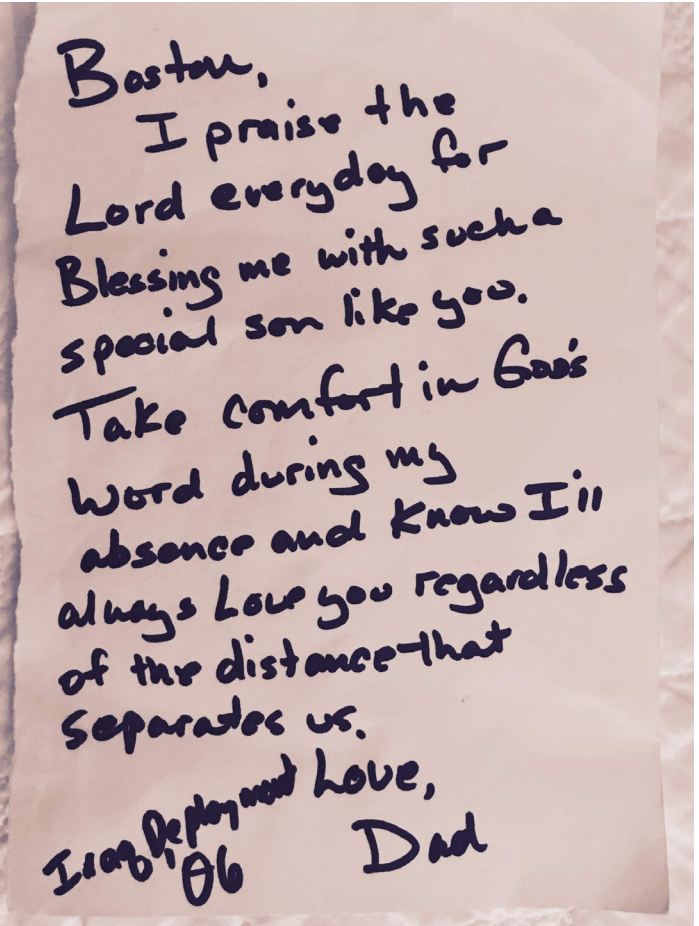 Boston,
I praise the
Lord everyday for
Blessing me with such a
special son like you.
Take comfort in God's
Word during my
absence and know I'll
always Love you regardless
of the distance that
separates us.
Love,
Iraq Deployment
06
Dad